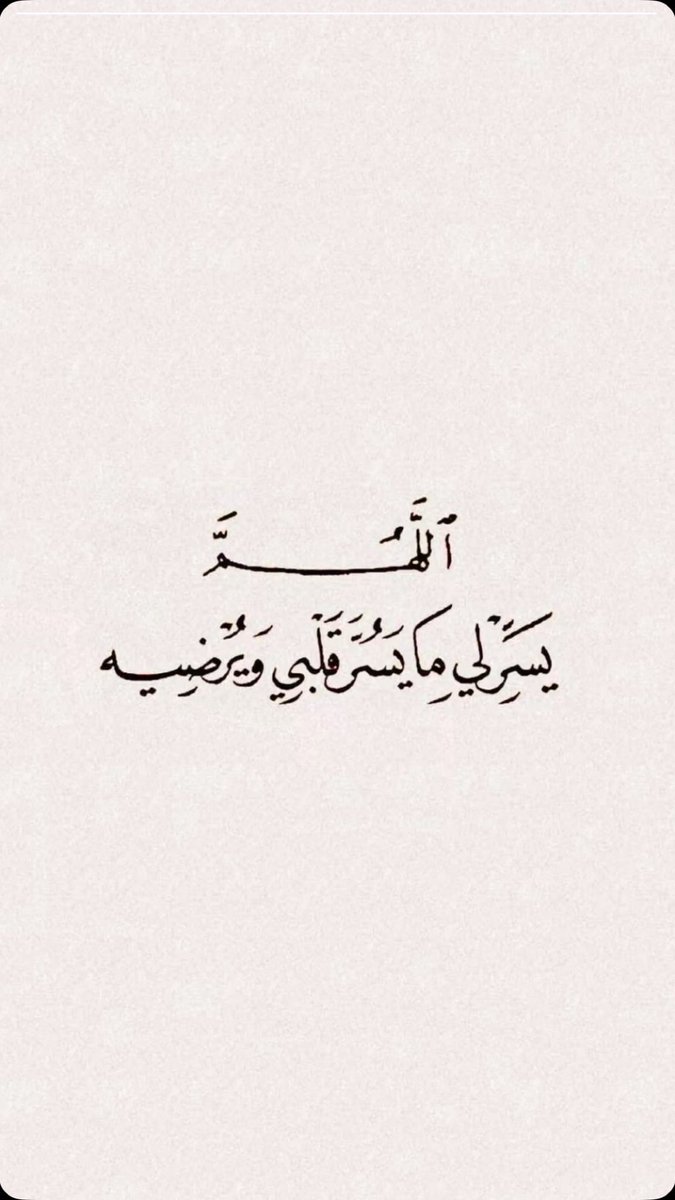 ٱللَّهُمَّ
يَسِّرْ لِي مَا يَسُرُّ قَلْبِي وَيُرْضِيه